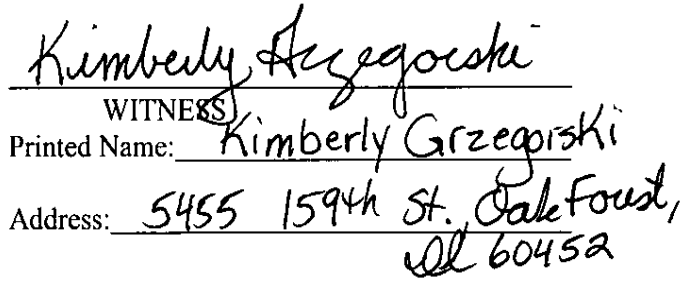 Kimberly Grzegorski
WITNESS
Printed Name: Kimberly Grzegorski
Address: 5455 159th St. Oak Forest,
Il 60452